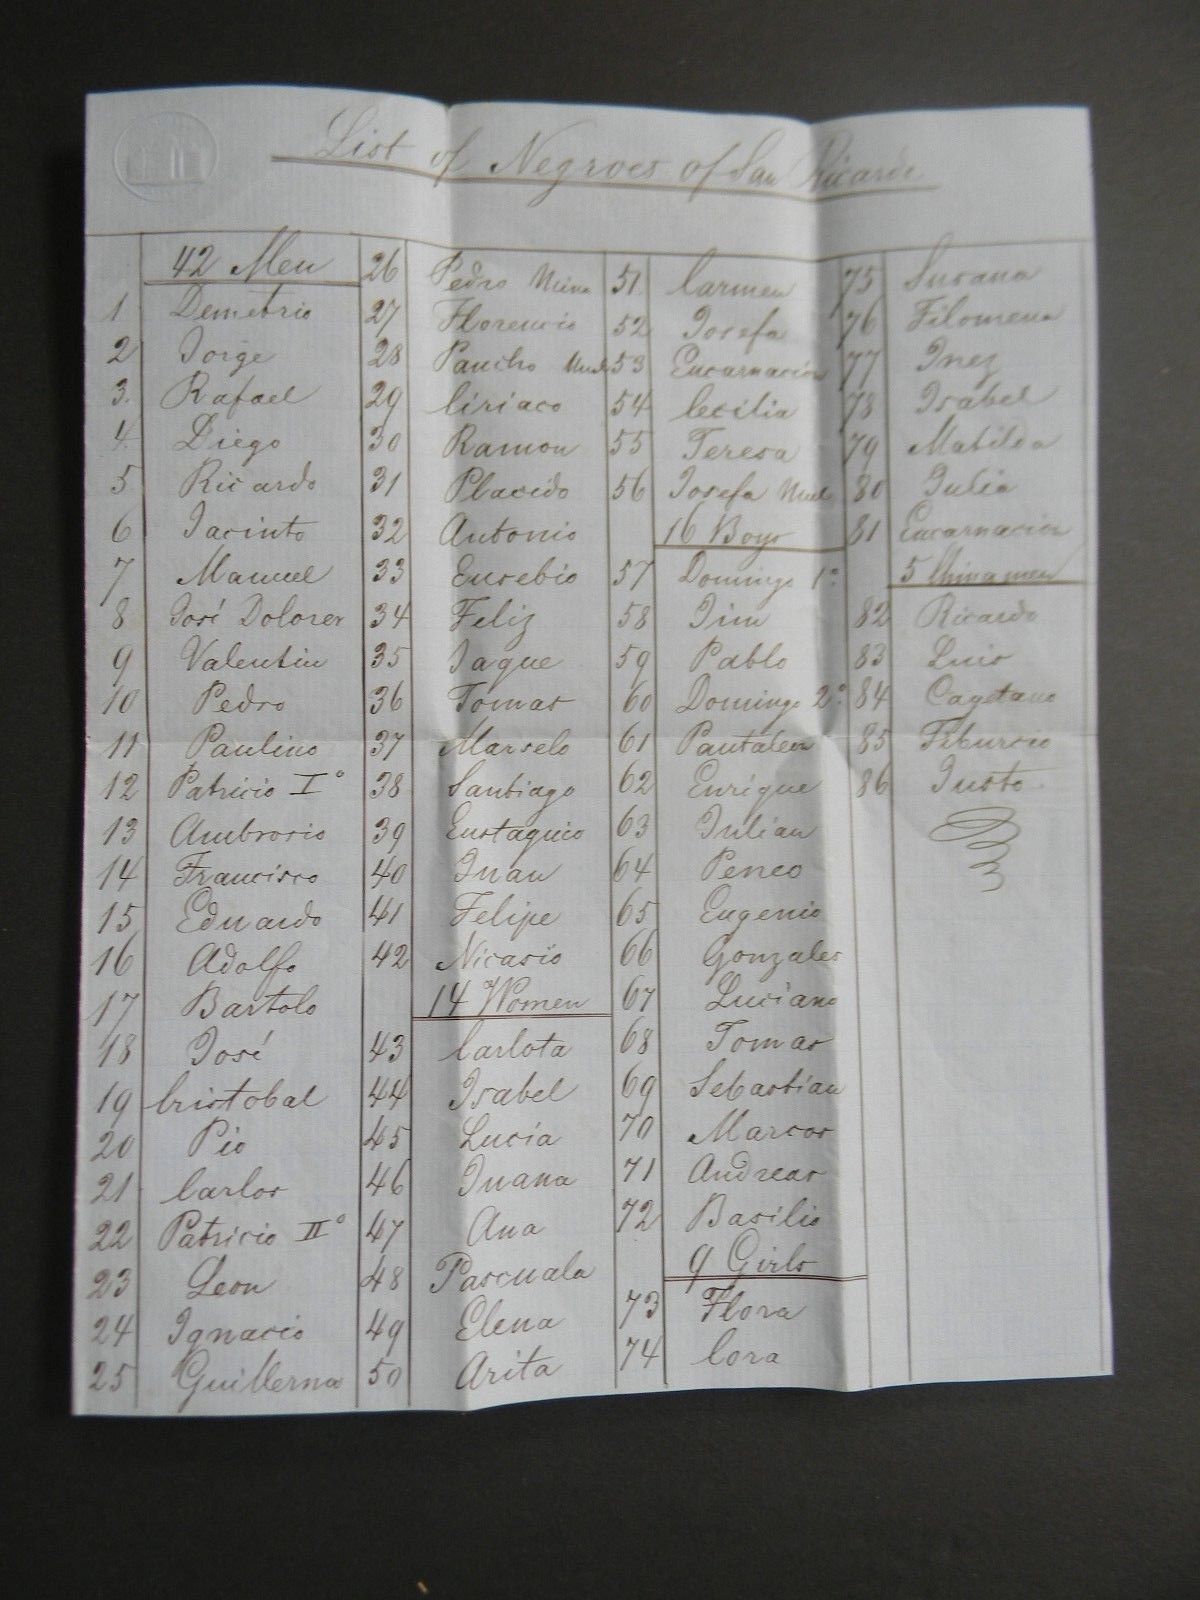 List of Negroes of San Ricardo
42 Men
1 Demetrio
2 Jorge
3. Rafael
4 Diego
5 Ricardo
6 Jacinto
7 Manuel
8 José Dolores
9 Valentin
10 Pedro
11 Paulino
12 Patricio I°
13 Ambrosio
14 Francisco
15 Eduardo
16 Adolfo
17 Bartolo
18 José
19 Cristobal
20 Pio
21 Carlos
22 Patricio II°
23 Leon
24 Ignacio
25 Guillermo
26 Pedro Mina
27 Florencio
28 Pancho
29 Ciriaco
30 Ramon
31 Placido
32 Antonio
33 Eusebio
34 Feliz
35 Jaque
36 Tomas
37 Marselo
38 Santiago
39 Eustaquio
40 Juan
41 Felipe
42 Nicasio
14 Women
43 Carlota
44 Isabel
45 Lucia
46 Juana
47 Ana
48 Pascuala
49 Elena
50 Arita
51 Carmen
52 Josefa
53 Encarnacion
54 Cecilia
55 Teresa
56 Josefa
16 Boys
57 Domingo 1°
58 Jim
59 Pablo
60 Domingo 2°
61 Pantaleon
62 Enrique
63 Julian
64 Peneo
65 Eugenio
66 Gonzales
67 Luciano
68 Tomas
69 Sebastian
70 Marcos
71 Andreas
72 Basilio
9 Girls
73 Flora
74 Cora
75 Susana
76 Filomena
77 Inez
78 Isabel
79 Matilda
80 Julia
81 Encarnacion
5 Chinamen
82 Ricardo
83 Luis
84 Cayetano
85 Tiburcio
86 Justo